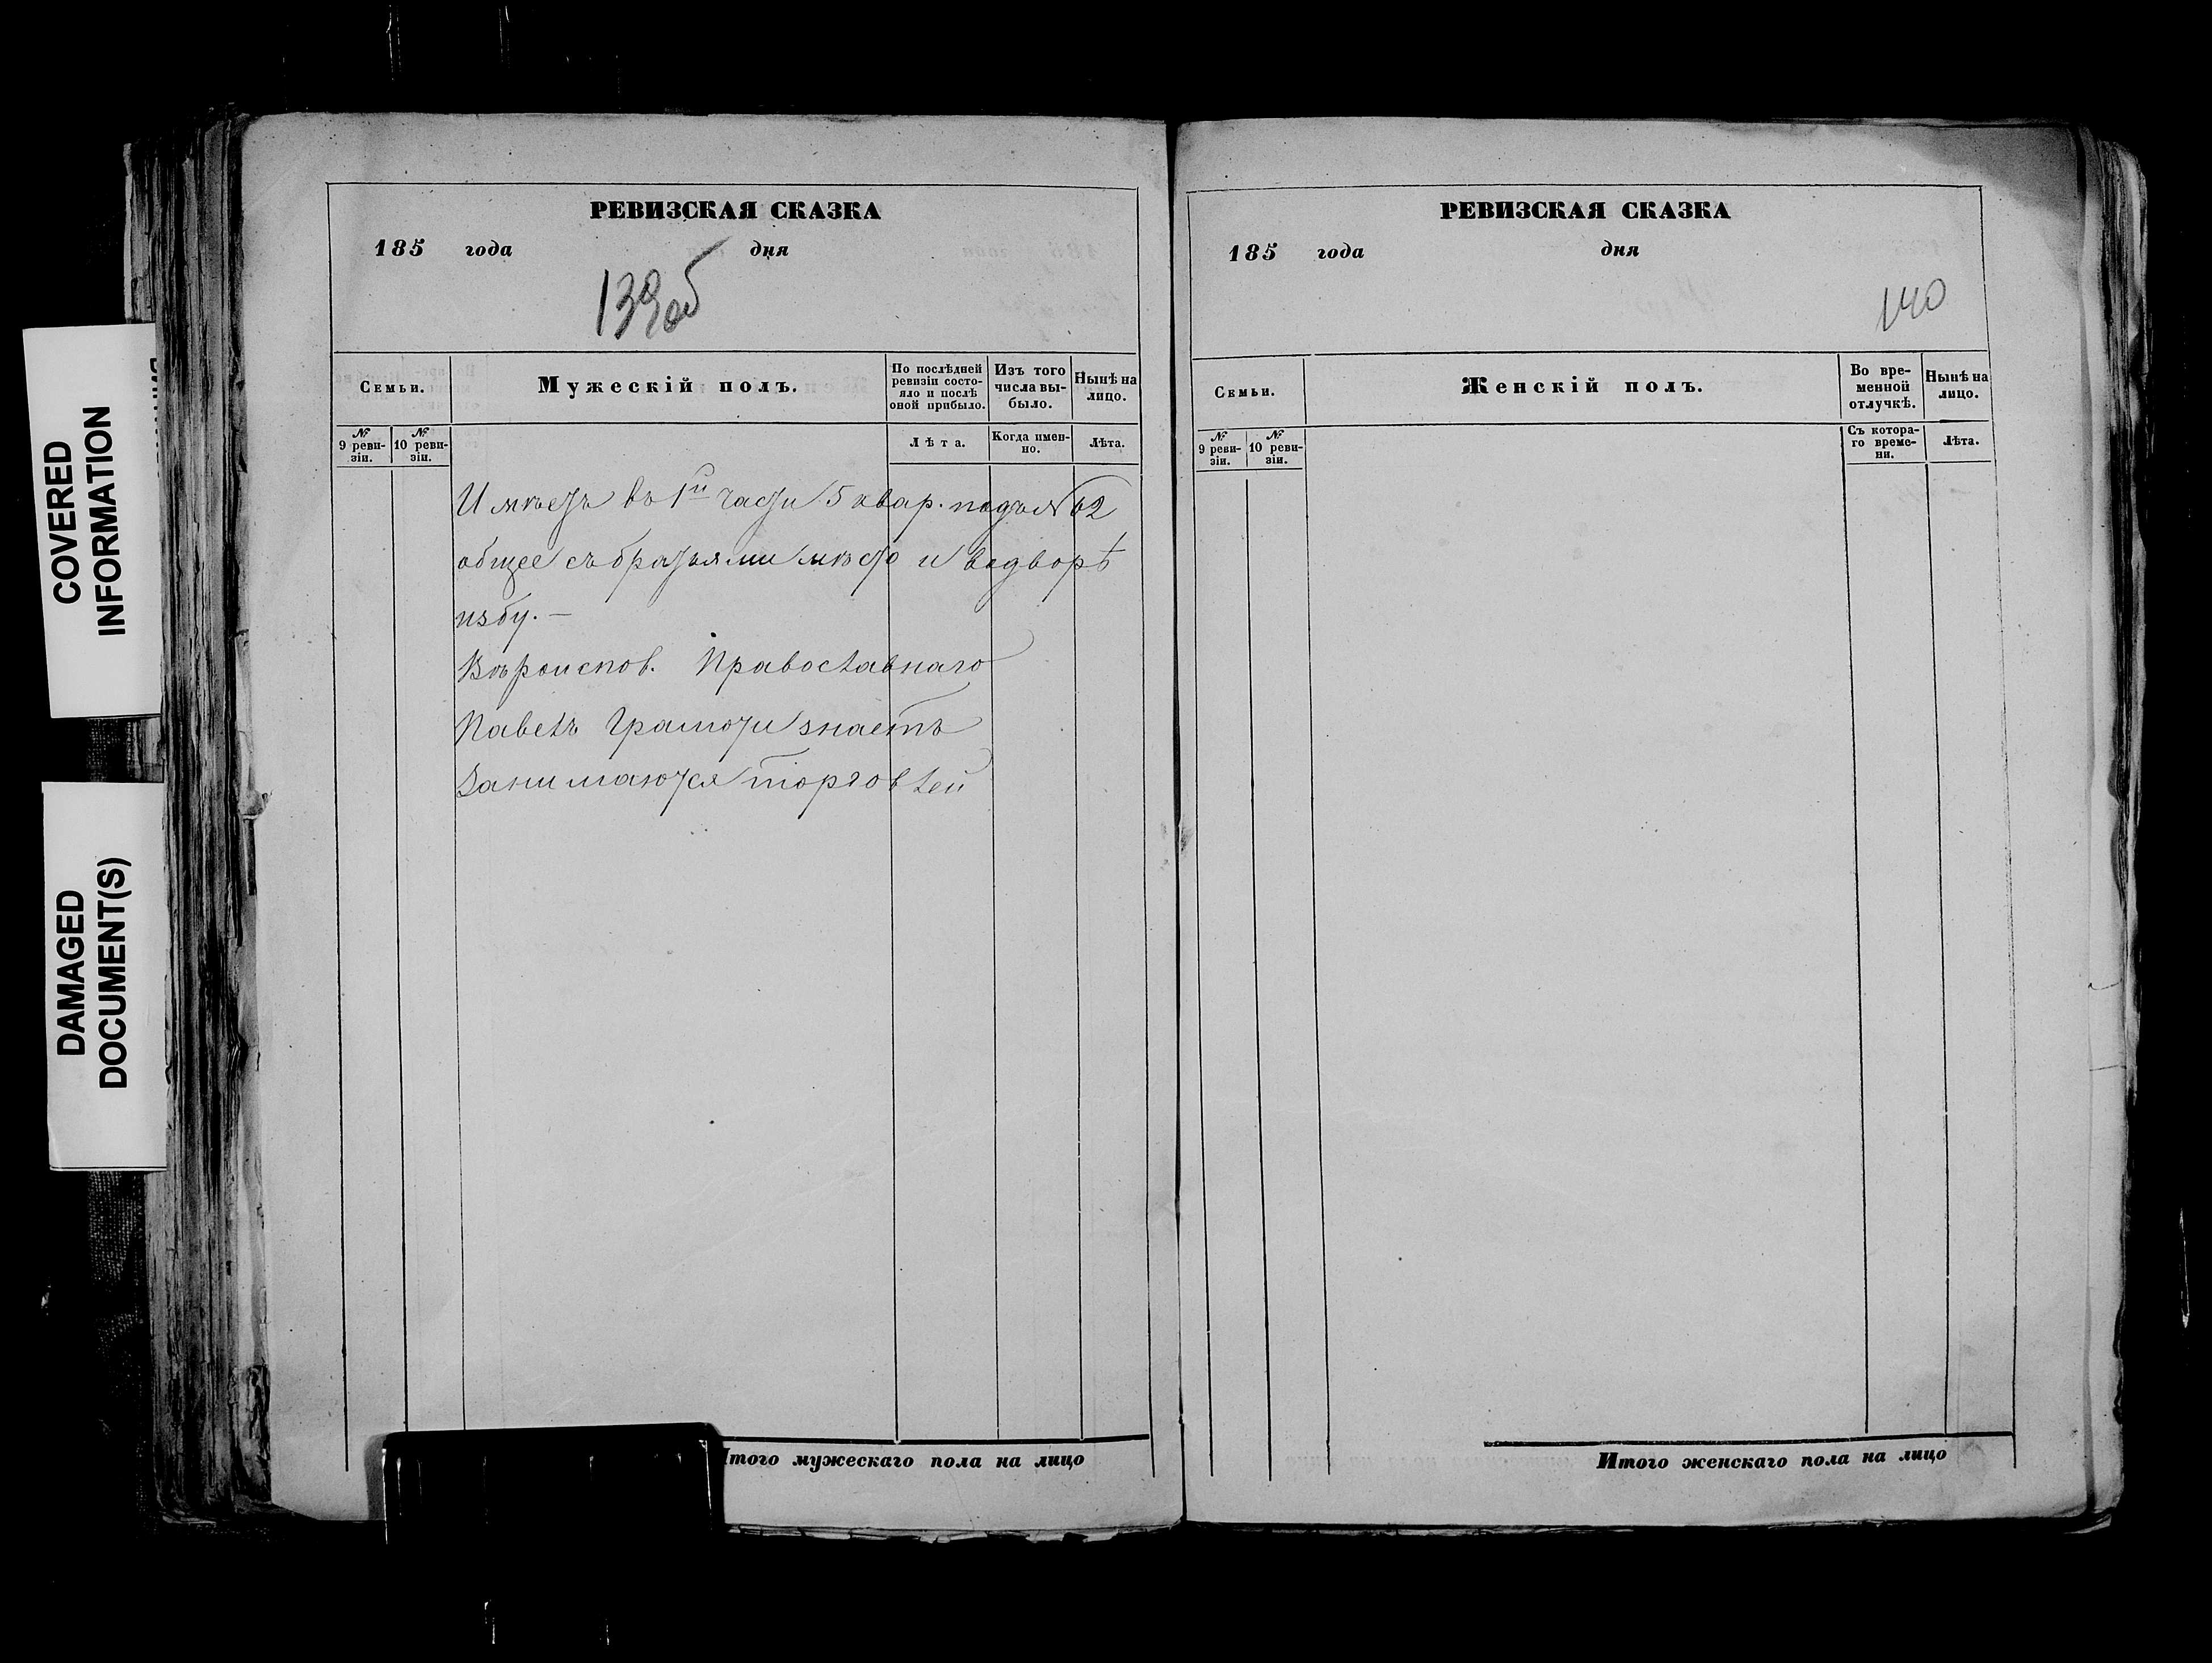 COVERED
INFORMATION
DAMAGED
DOCUMENT(S)
РЕВИЗСКАЯ СКАЗКА
185 года дня
139об
Семьи.
Мужескій полъ.
По послѣдней
ревизіи состо-
яло и послѣ
оной прибыло.
Изъ того
числа вы-
было.
Нынѣ на
лицо.
№
9 реви-
зіи.
№
10 реви-
зіи.
Лѣта.
Когда имен-
но.
Лѣта.
Имѣетъ въ 1й части 5 квар. подъ № 62
общее съ братьями мѣсто и во дворѣ
избу. —
Вѣроиспов. Православнаго
Павелъ Грамоти знаетъ
Занимаются торговлей
Итого мужескаго пола на лицо
РЕВИЗСКАЯ СКАЗКА
185 года дня
140
Семьи.
Женскій полъ.
Во вре-
менной
отлучкѣ.
Нынѣ на
лицо.
№
9 реви-
зіи.
№
10 реви-
зіи.
Съ котора-
го време-
ни.
Лѣта.
Итого женскаго пола на лицо